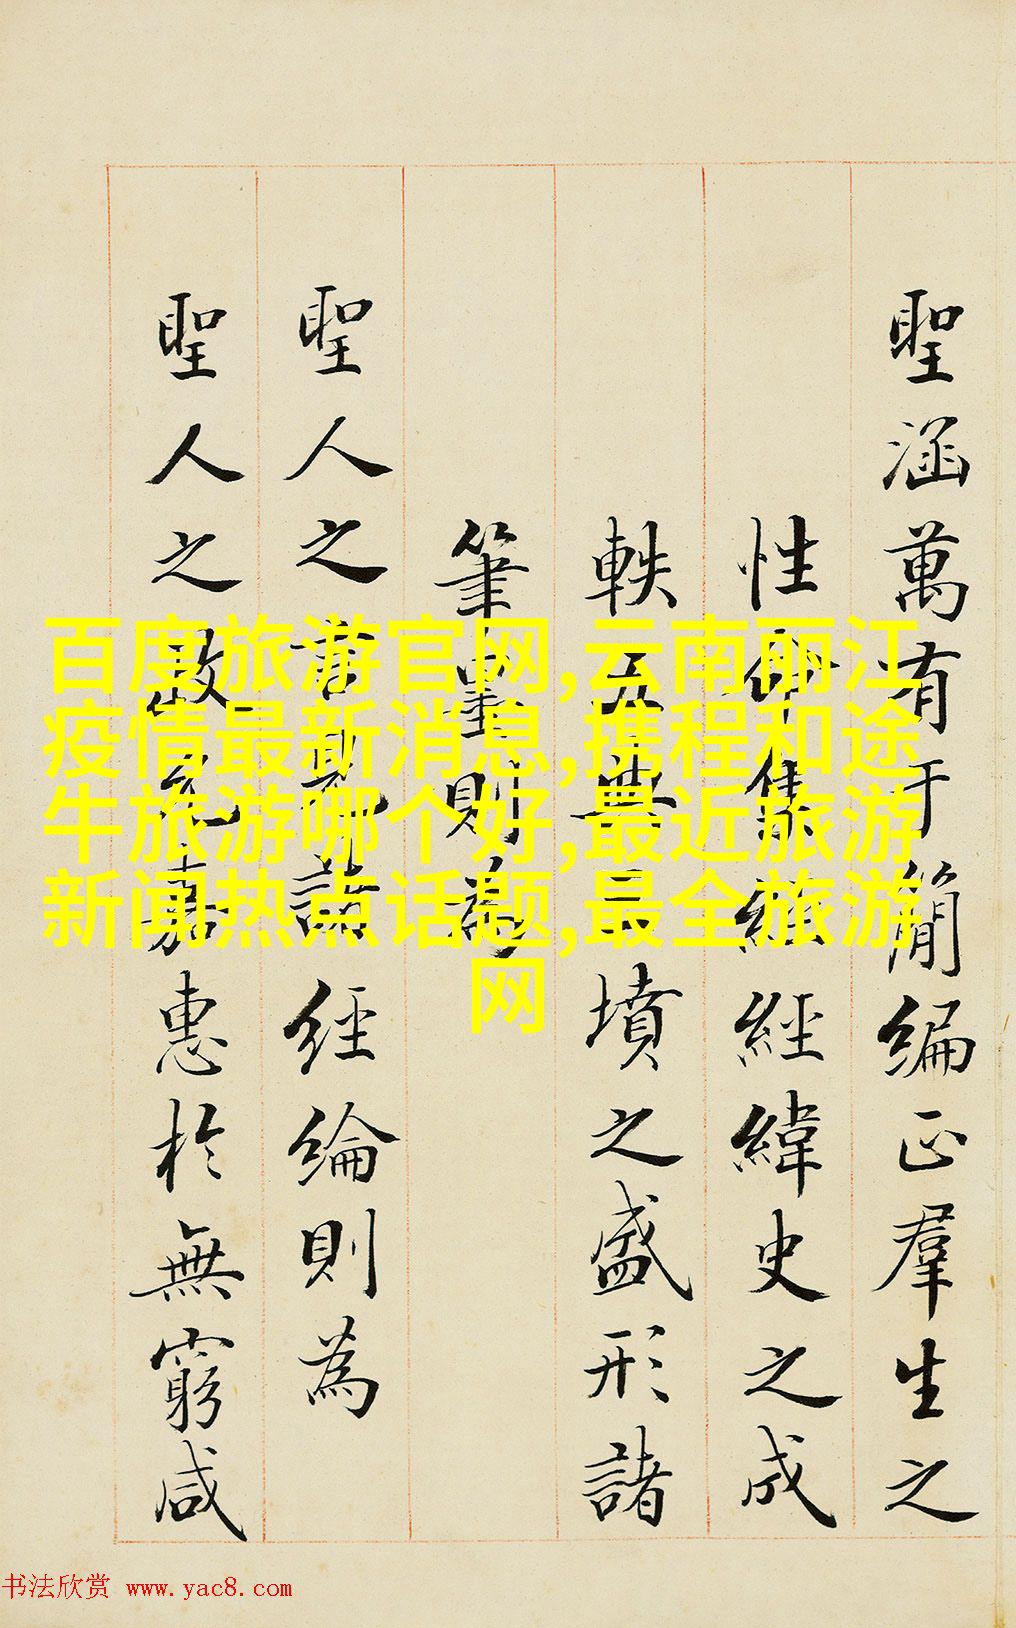 聖涵萬有于簡編正羣生之
性命集經緯史之成
軼五典三墳之盛形諸
筆墨則為
聖人之言見諸經綸則為
聖人之政嘉惠於無窮咸
百度旅游官网,云南丽江
疫情最新消息,携程和途
牛旅游哪个好,最近旅游
新闻热点话题,最全旅游
网
书法欣赏 www.yac8.com